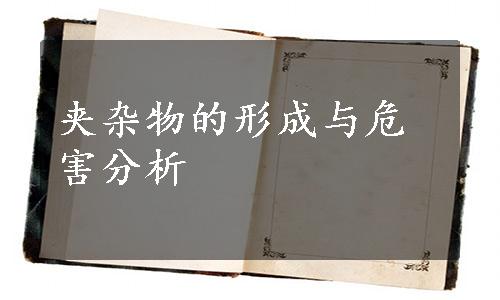 夹杂物的形成与危
害分析